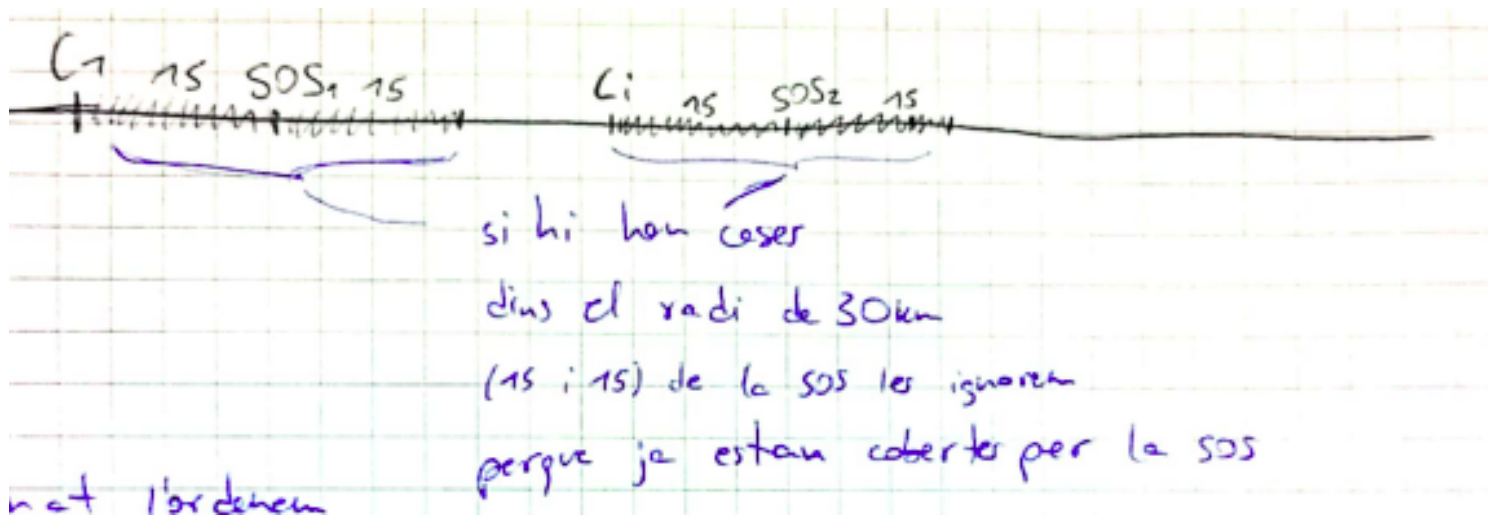 C1 15 SOS1 15 Ci 15 SOS2 15
si hi han cases
dins el radi de 30km
(15 i 15) de la SOS les ignorem
perque ja estan cobertes per la SOS
l'ordenem